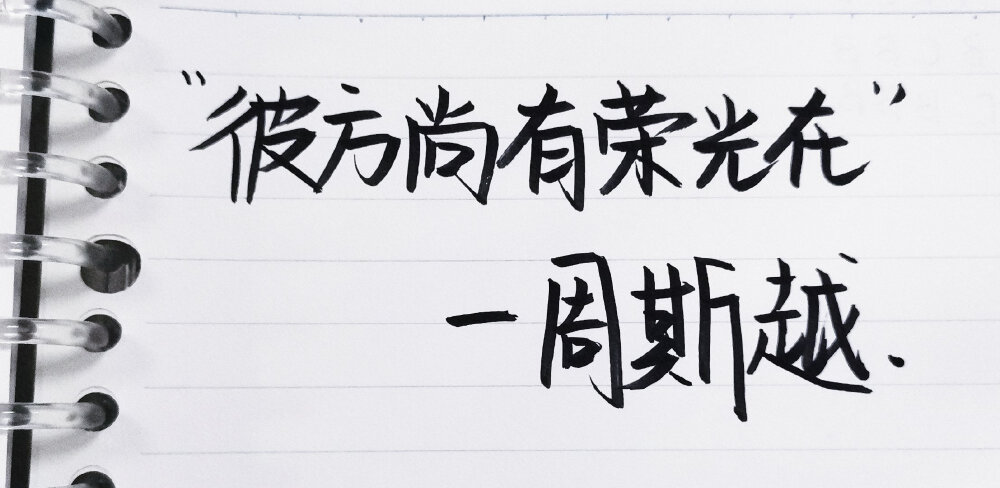 "彼方尚有荣光在"
—周斯越.